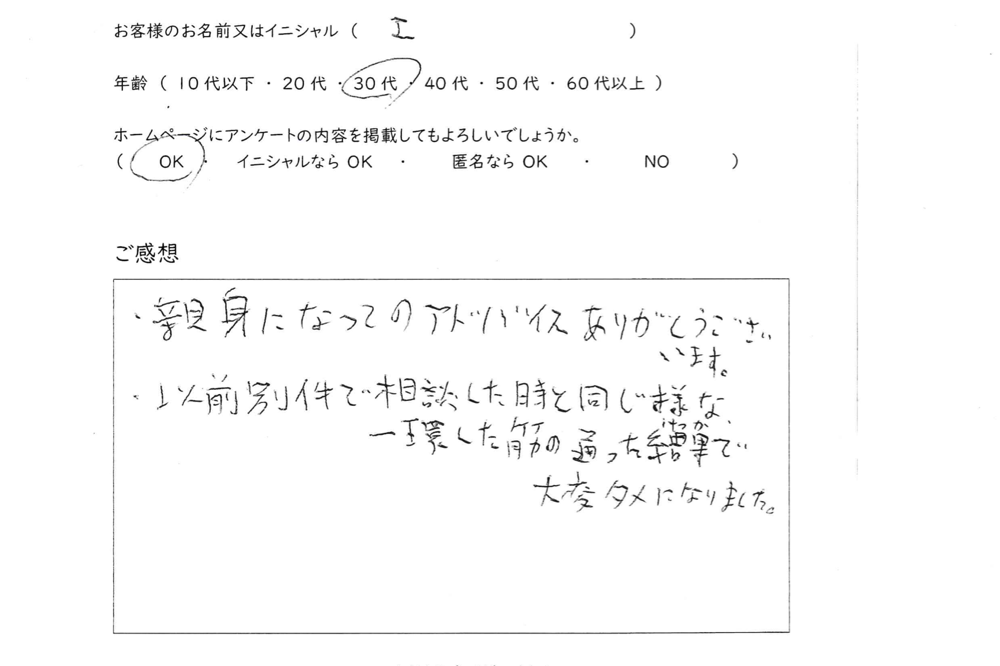 お客様のお名前又はイニシャル ( I )
年齢 ( 10代以下 ・ 20代 ・ 30代 ・ 40代 ・ 50代 ・ 60代以上 )
ホームページにアンケートの内容を掲載してもよろしいでしょうか。
( OK ・ イニシャルなら OK ・ 匿名なら OK ・ NO )
ご感想
・親身になってのアドバイスありがとうござい
います。
・以前別件で相談した時と同じ様な、
一環した筋の通った結果で
けっか
大変タメになりました。